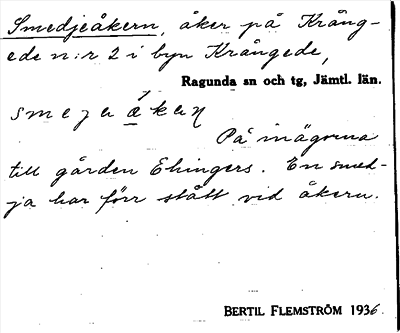 Smedjeåkern, åker på Krång-
ede n:r 2 i byn Krångede,
Ragunda sn och tg, Jämtl. län.
På inägorna
till gården Ehingers. En smed-
ja har förr stått vid åkern.
BERTIL FLEMSTRÖM 1936.